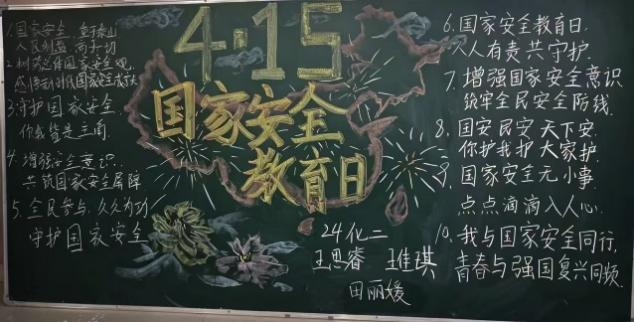 4·15
国家安全
教育日
1.国家安全 重于泰山
人民利益 高于一切
2.树牢总体国家安全观
感悟新时代国家安全成就
3.守护国家安全
你我皆是主角
4.增强安全意识
共筑国家安全屏障
5.全民参与,久久为功
守护国家安全
6.国家安全教育日.
人人有责共守护.
7.增强国家安全意识
筑牢全民安全防线.
8.国安民安天下安.
你护我护大家护.
9.国家安全无小事.
点点滴滴入人心.
10.我与国家安全同行,
青春与强国复兴同频.
24化二
王思睿 王佳琪
田丽媛